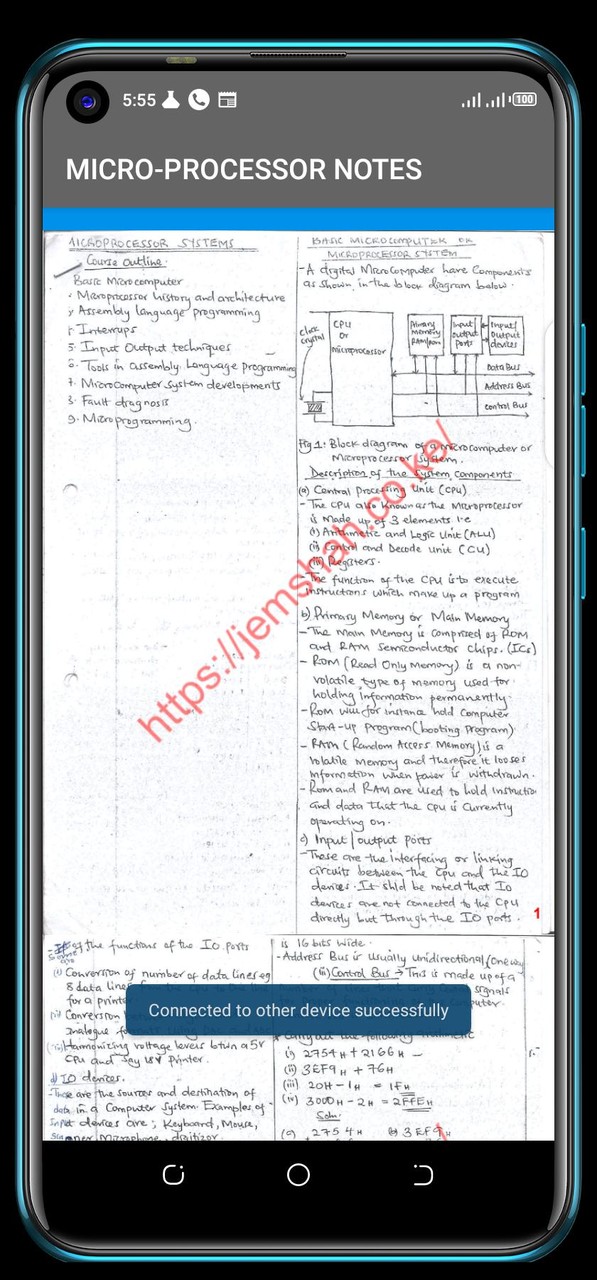 5:55
100
MICRO-PROCESSOR NOTES
MICROPROCESSOR SYSTEMS
Course outline.
Basic Microcomputer
Microprocessor history and architecture
Assembly language programming
Interrups
5. Input Output techniques
Tools in assembly Language programming
7. Microcomputer System developments
Fault diagnosis
9. Microprogramming.
BASIC MICROCOMPUTER OR
MICROPROCESSOR SYSTEM
- A digital Microcomputer have Components
as shown in the block diagram below.
Clock
crystal
CPU
or
Microprocessor
Primary
Memory
RAM/ROM
Input/
output
ports
Input/
Output
devices
Data Bus
Address Bus
Control Bus
Fig 1: Block diagram of a microcomputer or
Microprocessor System.
Description of the System Components
(a) Central Processing Unit (CPU)
- The CPU also known as the Microprocessor
is made up of 3 elements i.e
(i) Arithmetic and Logic Unit (ALU)
(ii) Control and Decode unit (CU)
(iii) Registers.
- The function of the CPU is to execute
instructions which make up a program
b) Primary Memory or Main Memory
- The Main Memory is comprised of ROM
and RAM Semiconductor chips. (ICs)
- ROM (Read Only Memory) is a non-
volatile type of memory used for
holding information permanently.
- ROM will for instance hold Computer
Start-up program (booting program)
- RAM (Random Access Memory) is a
volatile Memory and therefore it looses
information when power is withdrawn.
- Rom and RAM are used to hold instructio
and data that the CPU is Currently
operating on.
c) Input/output Ports
- These are the interfacing or linking
circuits between the Cpu and the IO
devices. It shld be noted that Io
devices are not connected to the CPU
directly but through the IO ports.
1
https://jemshah.co.ke/
of the functions of the IO ports
(i) Conversion of number of data lines eg
8 data lines
for a printer
Conversion
analogue
Harmonizing voltage levels btwn a 5v
CPU and say 18V Printer.
d) IO devices.
These are the sources and destination of
data in a Computer System. Examples of
Input devices are; Keyboard, Mouse,
Microphone, digitizer.
is 16 bits wide.
- Address Bus is usually unidirectional (One way
(iii) Control Bus → This is made up of a
signals
computer
carry out the following
(i) 2754H + 2166H
(ii) 3EF9H + 76H
(iii) 20H - 1H = 1FH
(iv) 3000H - 2H = 2FFEH
Soln:
(a) 2754H
(b) 3EF9H
Connected to other device successfully